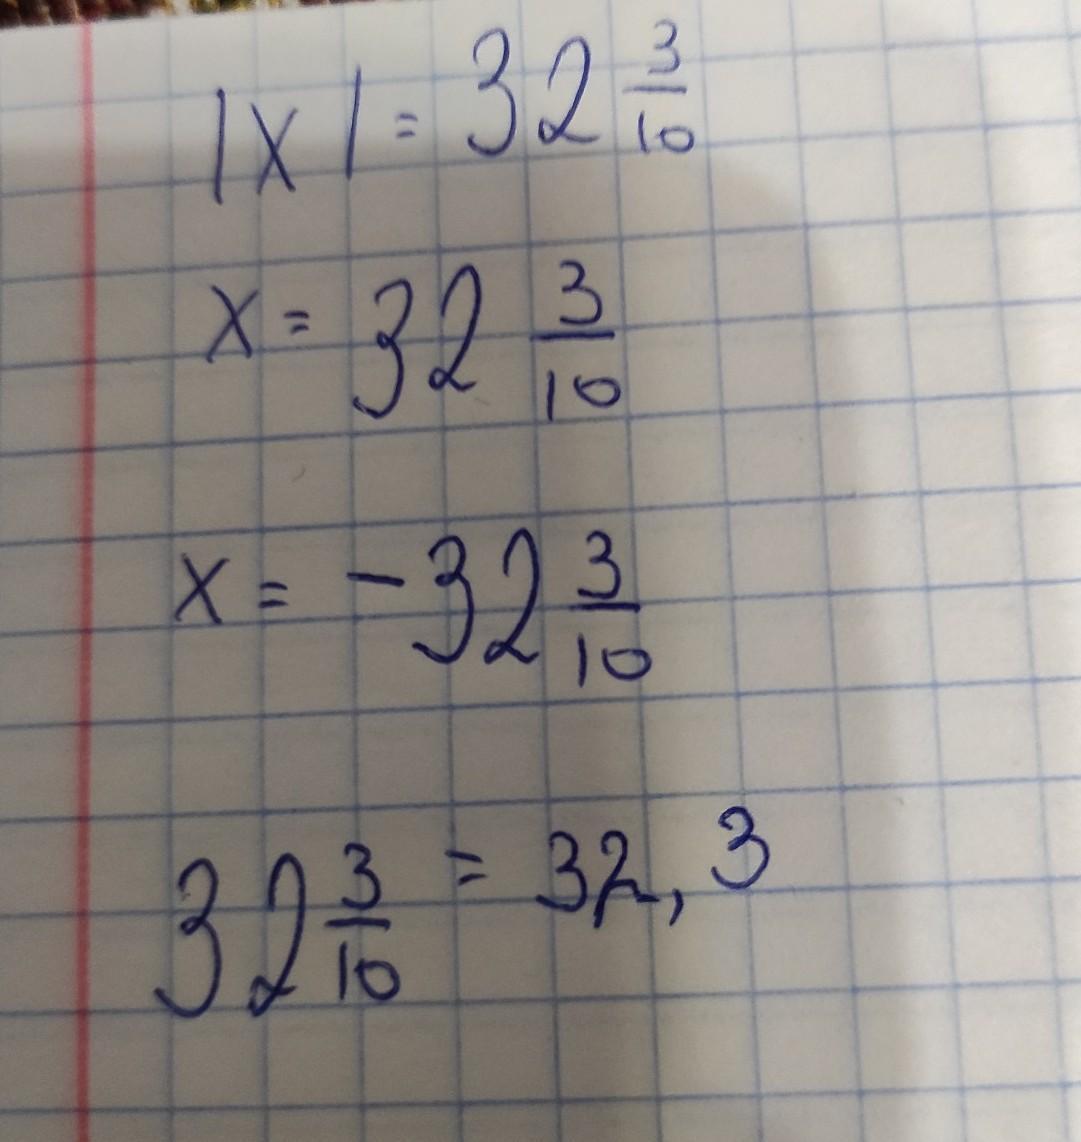 |x| = 32 3/10
x = 32 3/10
x = -32 3/10
32 3/10 = 32,3